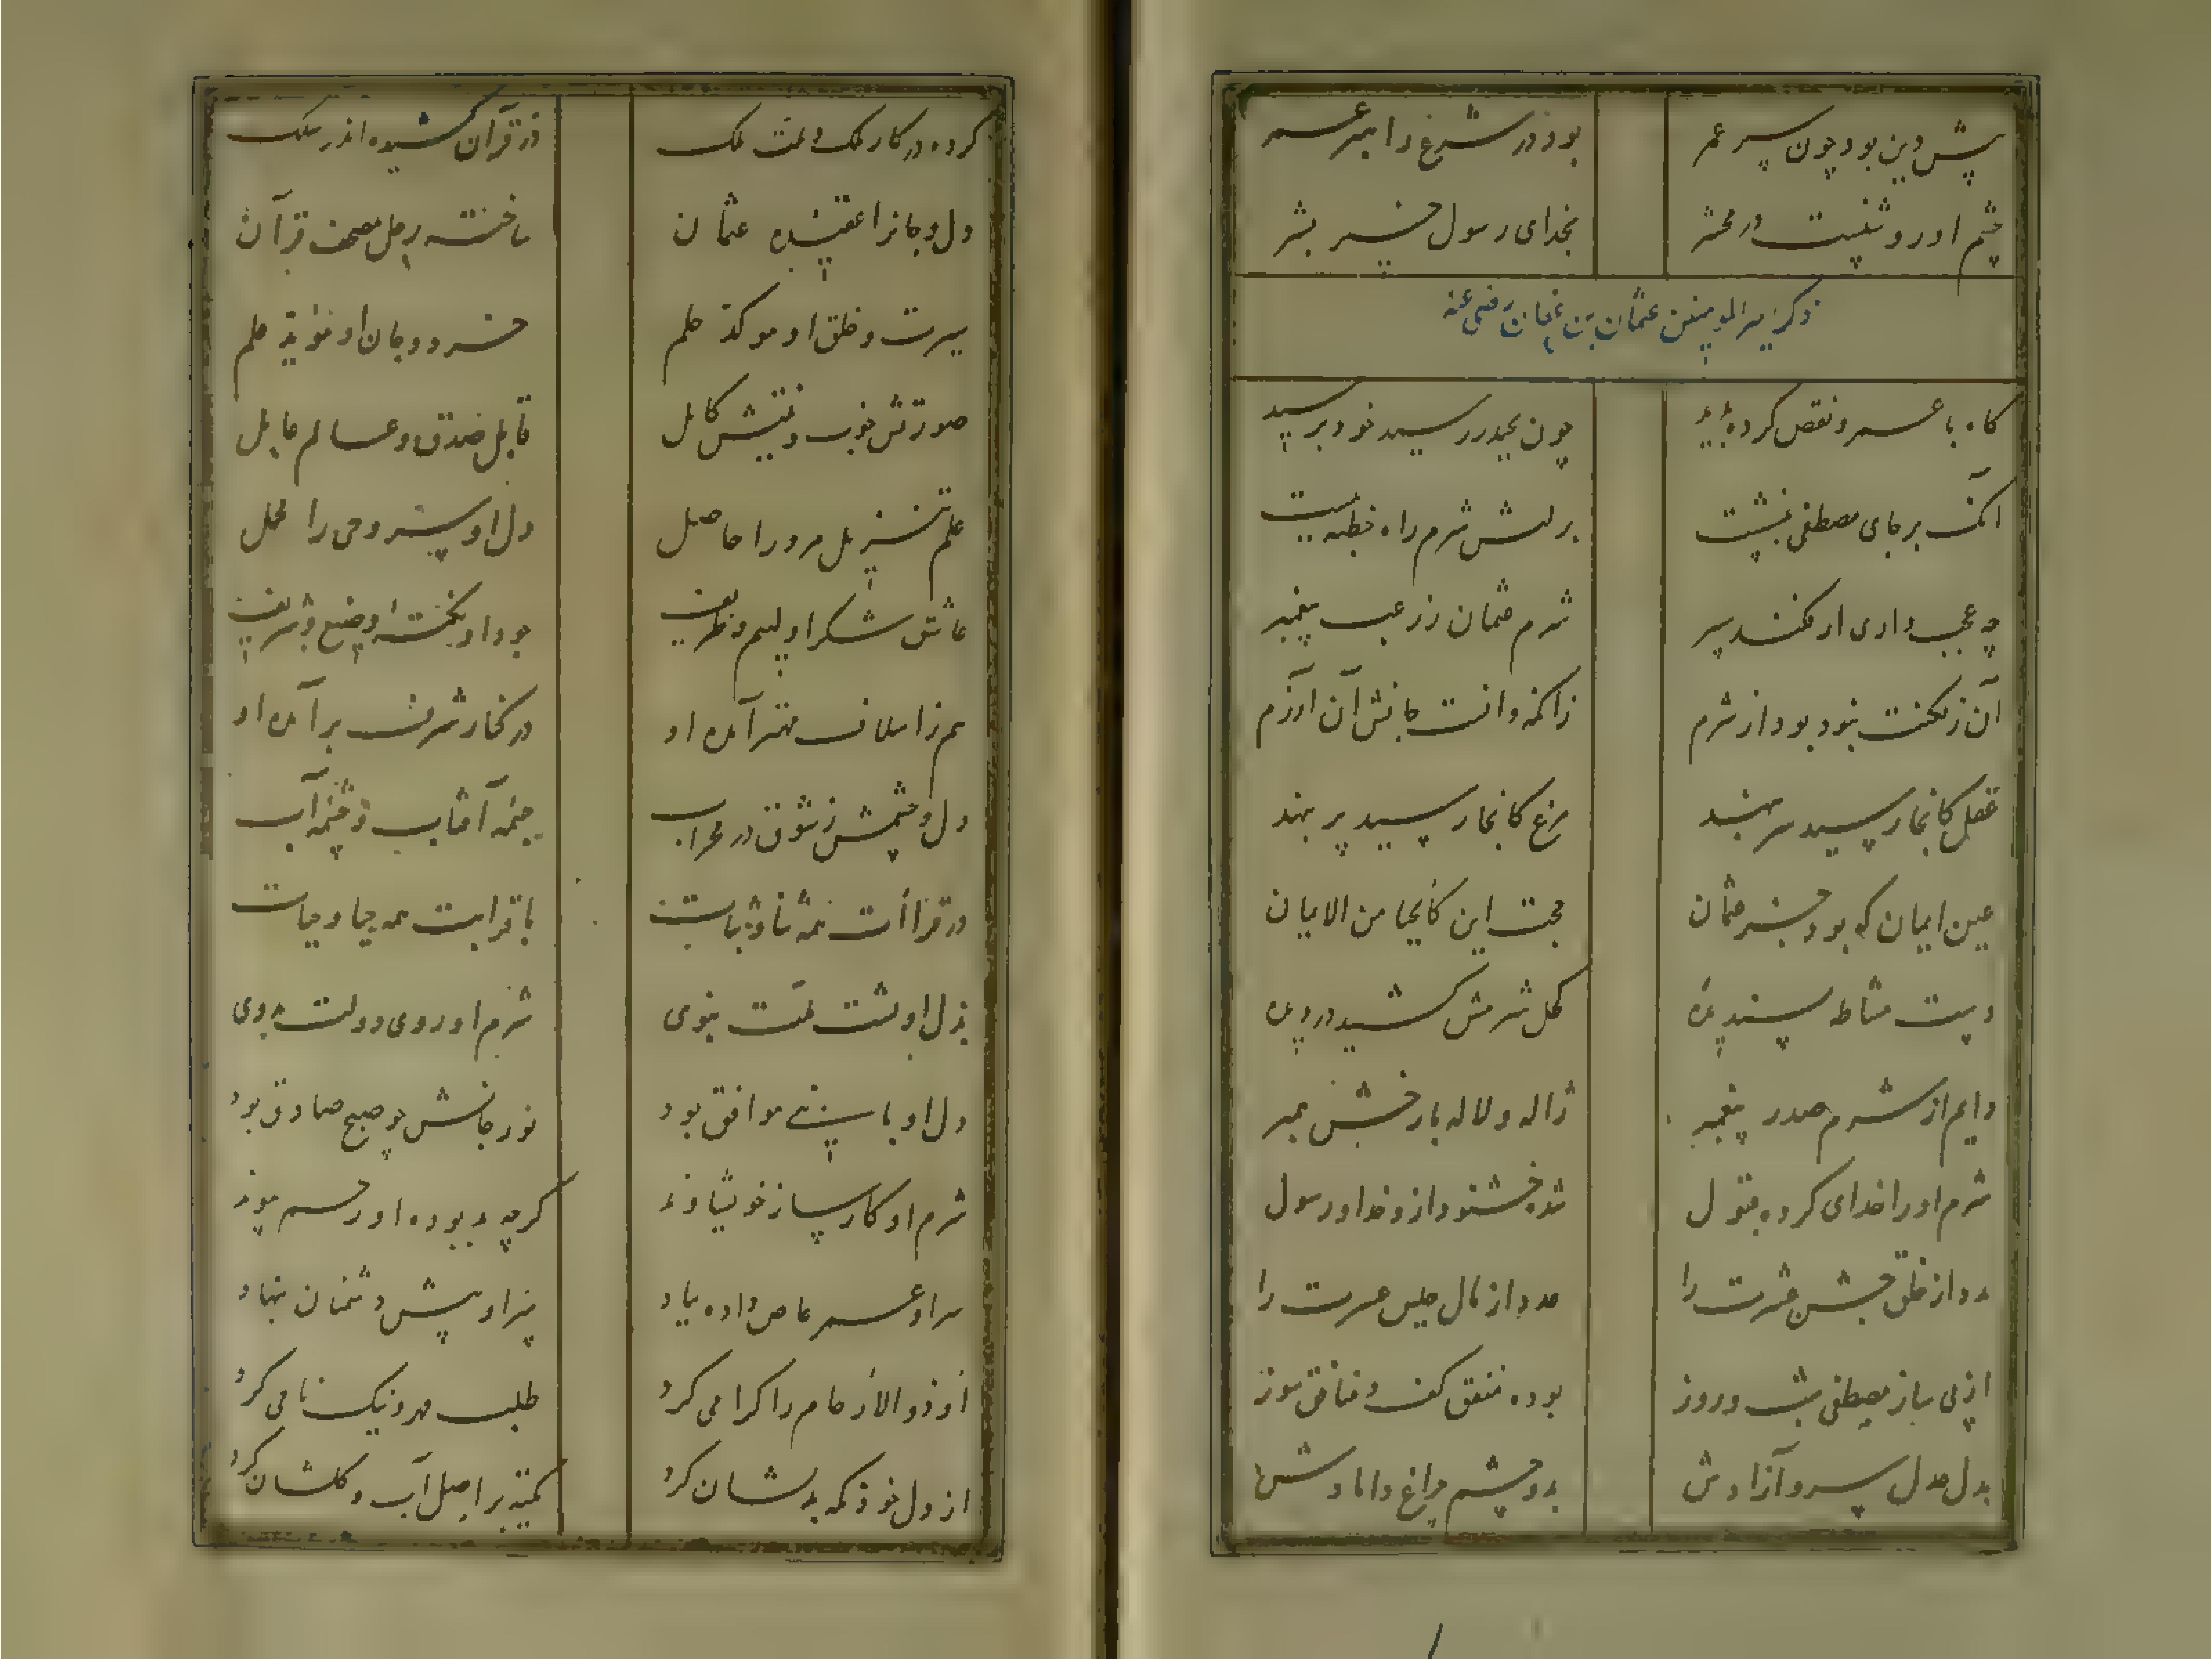 پیش دین بود چون سپر عمر
بود در شرع را ببر عمر
چشم او روشنیست در محشر
بخدای رسول خیر بشر
ذکر امیرالمومنین عثمان بن عفان رضی عنه
کاه با عمر و نقص کرده
چون بحیدر رسید خود برسید
آنک بر جای مصطفی بنشست
بر لبش شرم راه خطبه ببست
چه عجب داری ار فکند سپر
شرم عثمان ز رعب پیغمبر
آن ز لکنت نبود بود از شرم
زانکه دانست جانش آن آزرم
عقل کانجا رسید سر بنهد
مرغ کانجا رسید پر بنهد
عین ایمان که بود جز عثمان
حجت این کالحیا من الایمان
دست مشاطه پسندیده
کحل شرمش کشید در دیده
دایم از شرم صدر پیغمبر
ژاله و لاله بار خشن عبر
شرم او را خدای کرده قبول
شده خشنود ازو خدا و رسول
مدد از خلق جیش عشرت را
مدد از مال جیش عسرت را
از پی ساز مصطفی شب و روز
بوده منفق کف و منافق سوز
بدل عدل سرو آزادش
بدو چشم چراغ دامادش
کرده در کار ملک و ملت ملک
در قرآن کشیده اندر سلک
دل و جانرا عقیده عثمان
ساخته رحل مصحف قرآن
سیرت و خلق او موکد حلم
خرد و جان او مؤید علم
صورتش خوب و نیتش کامل
قابل صدق و عالم عامل
علم تنزیل مرورا حاصل
دل او سر وحی را محمل
عاشق شکر او لئیم و ظریف
جود او نکته وضیع و شریف
هم ز اسلاف مهتر آمده او
در کنار شرف برآمده او
دل و چشمش ز شوق در محراب
چشمه آفتاب و چشمه آب
در قراات همه ثنا و ثبات
با قرابت همه حیا و حیات
بذل او پشت ملت نبوی
شرم او روی دولت اموی
دل او با نبی موافق بود
نور جانش چو صبح صادق بود
شرم او کار ساز خویشاوند
کرچه بد بوده او رحم پیوند
سر او عمر عاص داده بباد
سر او پیش دشمنان بنهاد
او ذوالارحام را کرامی کرد
طلب مهر و نیک نامی کرد
از دل خود که بدلشان کرد
تکیه بر اصل آب و کلشان کرد